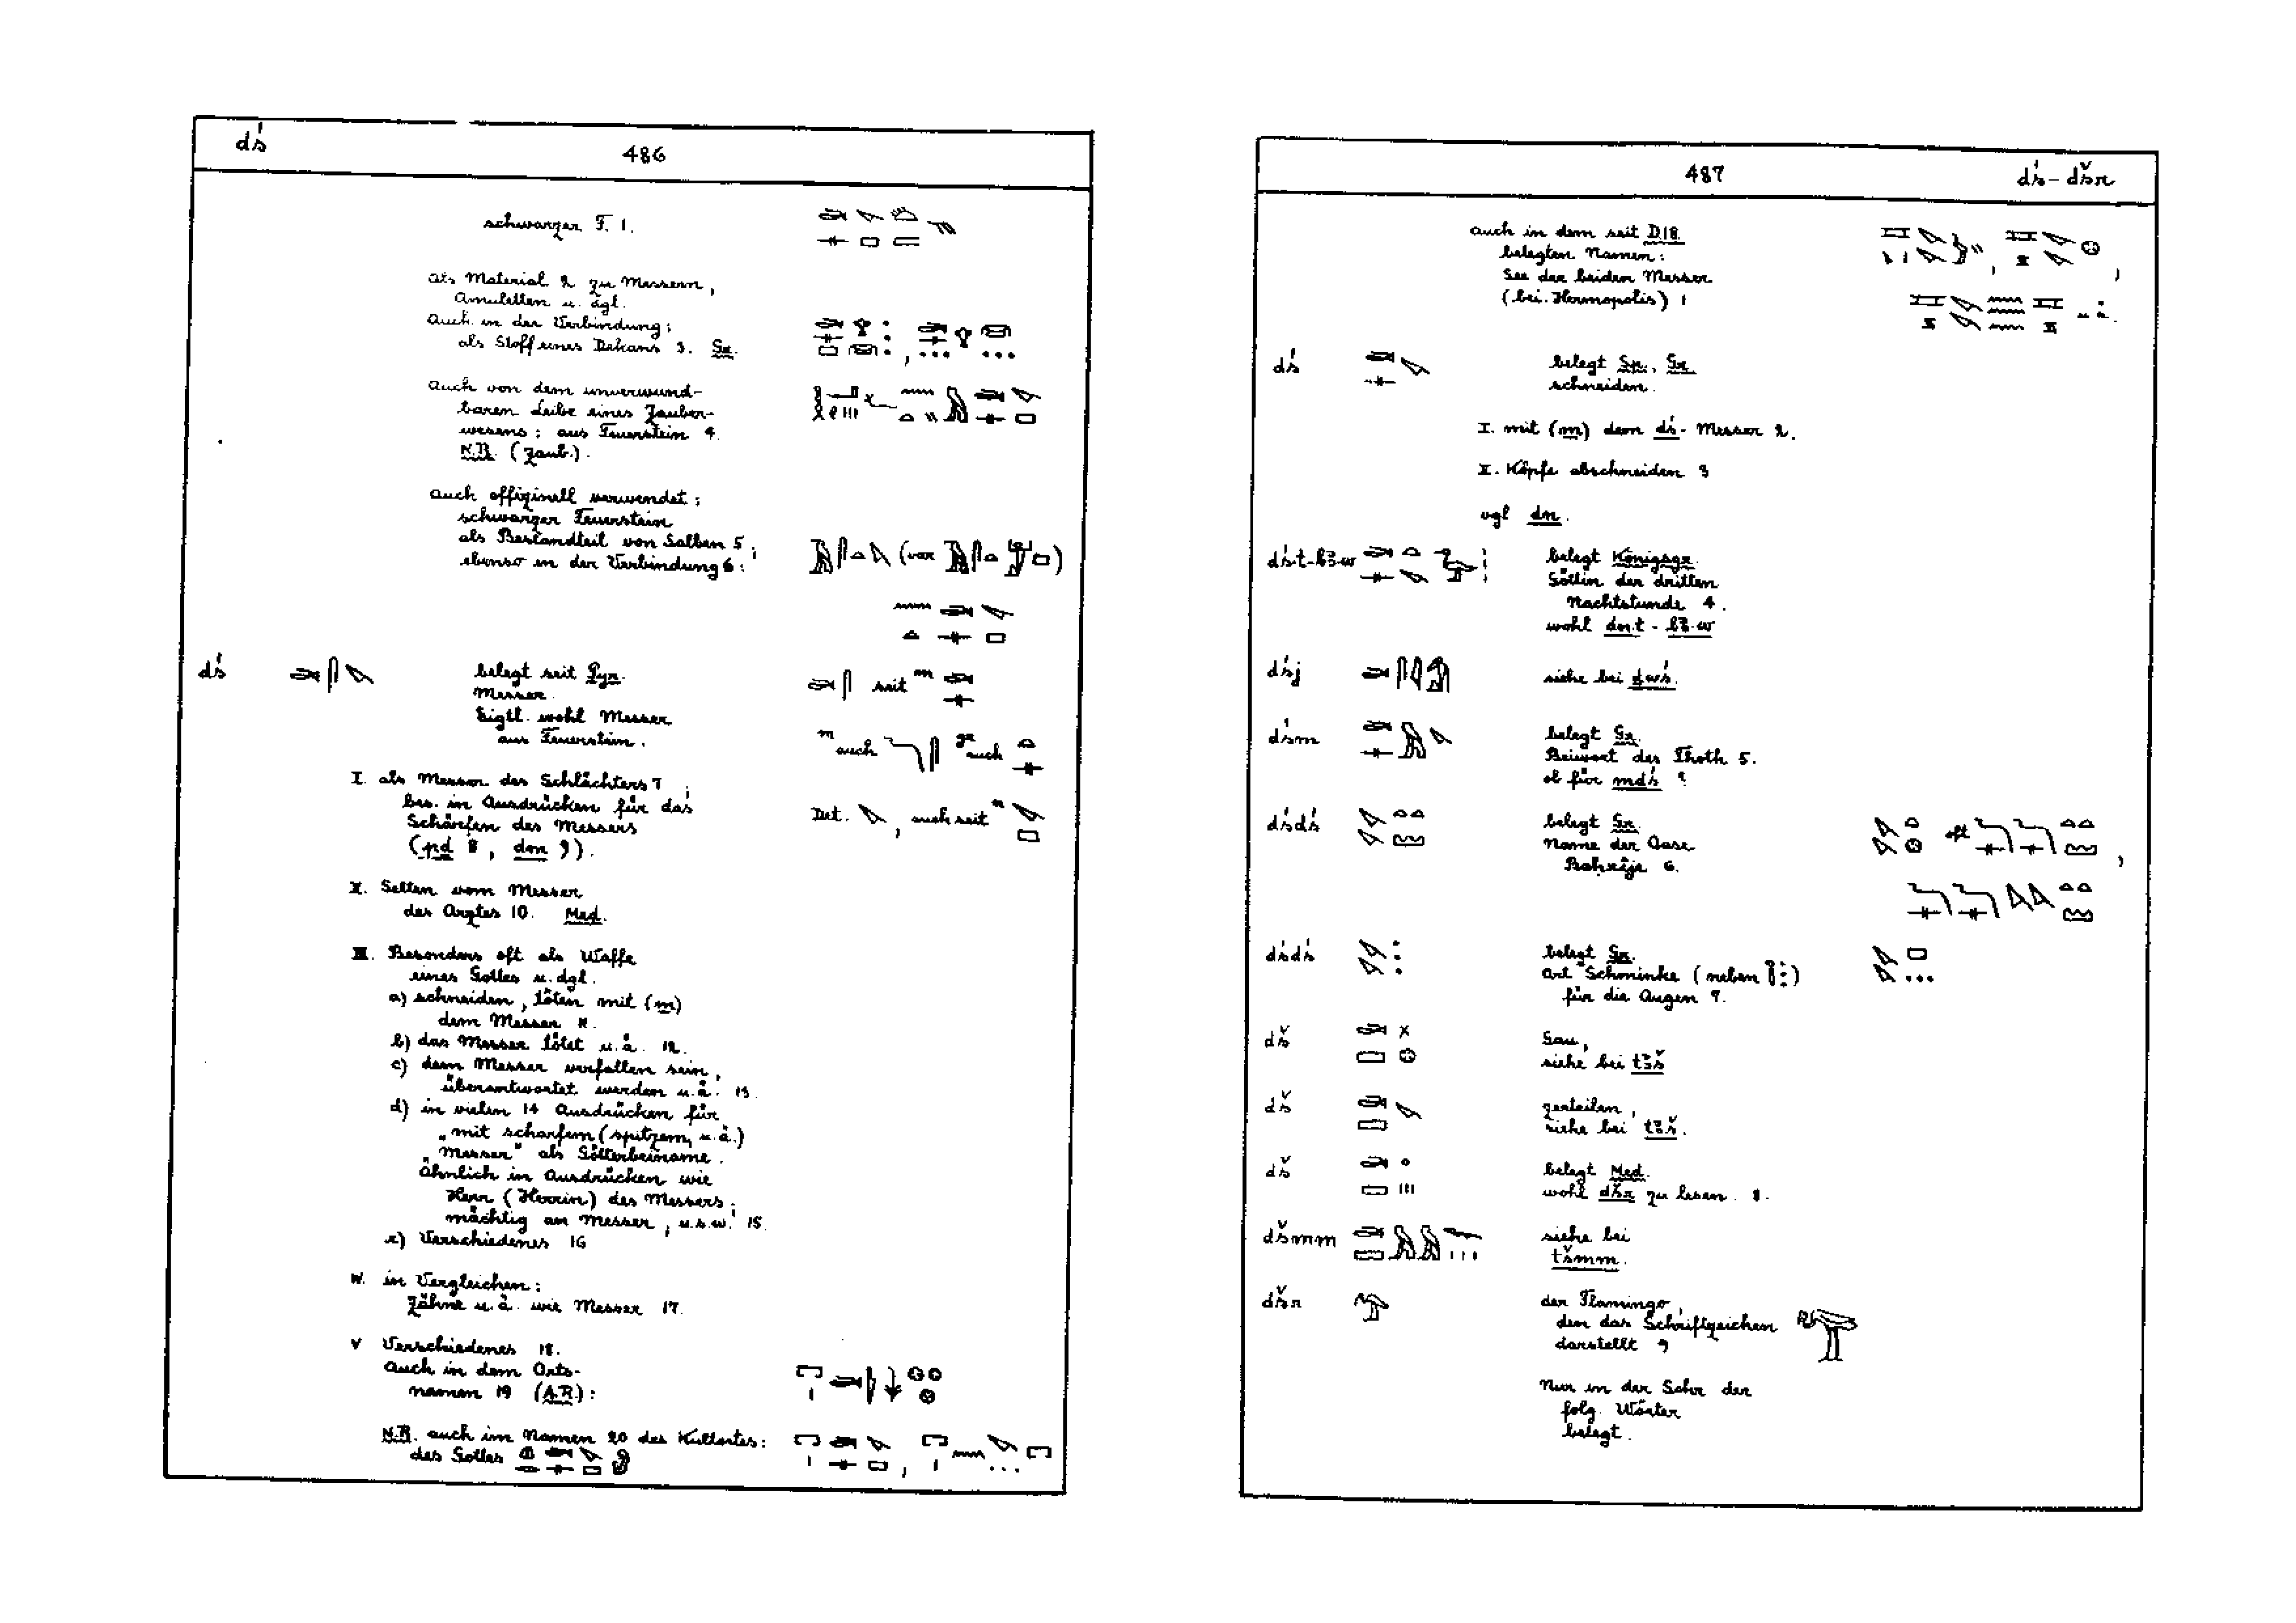 dś
486
schwarzer F. 1.
als Material 2 zu Messern,
Amuletten u. dgl.
Auch in der Verbindung:
als Stoff eines Dekans 3. Gr.
Auch von dem unverwund-
baren Leibe eines Zauber-
wesens: aus Feuerstein 4.
N.R. (Zaub.).
Auch offizinell verwendet:
schwarzer Feuerstein
als Bestandteil von Salben 5;
ebenso in der Verbindung 6:
(var )
dś
belegt seit Pyr.
Messer.
Eigtl. wohl Messer
aus Feuerstein.
seit m
m auch gr auch
Det. , auch seit n
I. als Messer des Schlächters 7;
bes. in Ausdrücken für das
Schärfen des Messers
(pd 8, dm 9).
II. Selten vom Messer
des Arztes 10. Med.
III. Besonders oft als Waffe
eines Gottes u. dgl.
a) schneiden, töten mit (m)
dem Messer 11.
b) das Messer tötet u. ä. 12.
c) dem Messer verfallen sein,
überantwortet werden u. ä. 13.
d) in vielen 14 Ausdrücken für
„mit scharfem (spitzem, u. ä.)
Messer" als Götterbeiname.
Ähnlich in Ausdrücken wie
Herr (Herrin) des Messers;
mächtig an Messer, u.s.w. 15.
e) Verschiedenes 16
IV. in Vergleichen:
Zähne u. ä. wie Messer 17.
V Verschiedenes 18.
Auch in dem Orts-
namen 19 (A.R.):
N.R. auch im Namen 20 des Kultortes:
des Gottes
487
dś – dšr
auch in dem seit D.18.
belegten Namen:
See der beiden Messer
(bei Hermopolis) 1
u. ä.
dś
belegt Sp., Gr.
schneiden.
I. mit (m) dem dś - Messer 2.
II. Köpfe abschneiden 3
vgl dn.
dś·t-bꜣ·w
belegt Königsgr.
Göttin der dritten
Nachtstunde 4.
wohl dn·t - bꜣ·w
dśj
siehe bei dwś.
dśm
belegt Gr.
Beiwort des Thoth 5.
ob für mdś ?
dśdś
belegt Gr.
Name der Oase
Bahrije 6.
oft
dśdś
belegt Gr.
Art Schminke (neben )
für die Augen 7.
dš
Gau,
siehe bei tꜣš
dš
zerteilen,
siehe bei tꜣš.
dš
belegt Med.
wohl dšr zu lesen. 8.
dšmm
siehe bei
tšmm.
dšr
der Flamingo,
den das Schriftzeichen
darstellt 9
Nur in der Schr der
folg. Wörter
belegt.